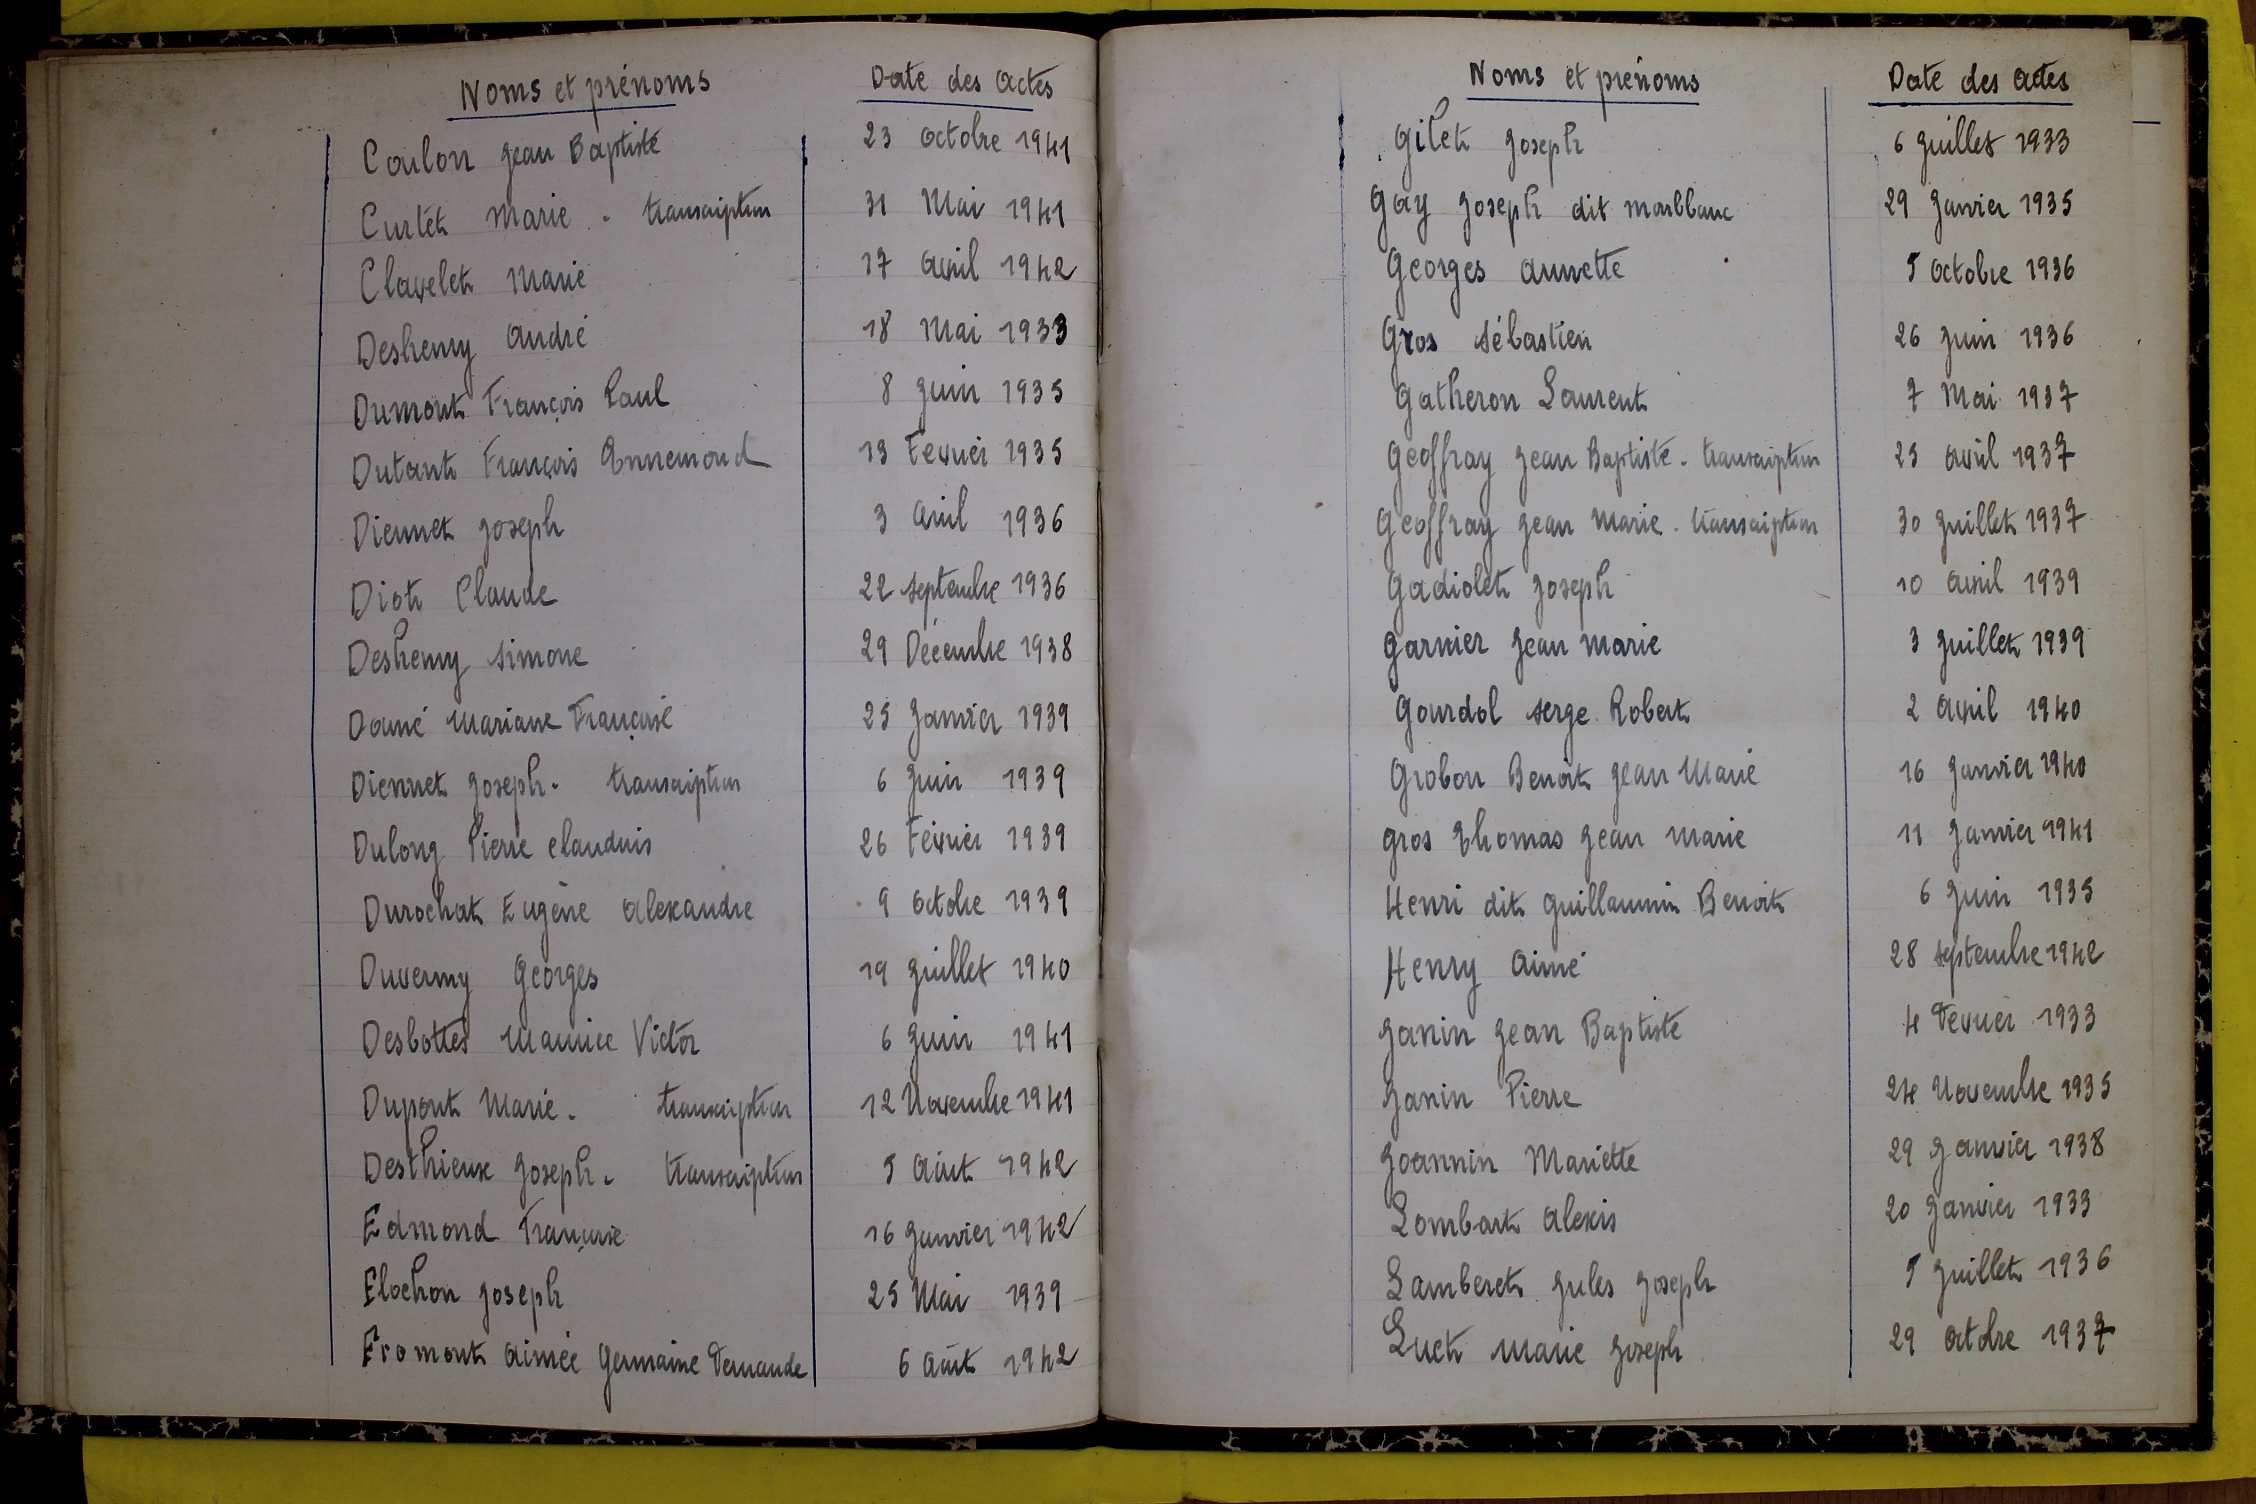 Noms et prénoms Date des actes
Coulon Jean Baptiste 23 octobre 1941
Curtet Marie - transcription 31 Mai 1941
Clavelet Marie 17 avril 1942
Deshenry André 18 Mai 1933
Dumont François Paul 8 Juin 1935
Dutant François Ennemond 13 Fevrier 1935
Diennet Joseph 3 avril 1936
Diot Claude 22 septembre 1936
Deshenry Simone 29 Décembre 1938
Danné Mariane Françoise 25 Janvier 1939
Diennet Joseph - transcription 6 Juin 1939
Dulong Pierre Claudius 26 Février 1939
Durochat Eugène Alexandre 9 octobre 1939
Duverny Georges 19 Juillet 1940
Desbottes Maurice Victor 6 Juin 1941
Dupont Marie - transcription 12 Novembre 1941
Desthieux Joseph - transcription 5 Août 1942
Edmond Françoise 16 Janvier 1942
Flochon Joseph 25 Mai 1939
Fromont Aimée Germaine Fernande 6 Août 1942
Noms et prénoms Date des actes
Gilet Joseph 6 Juillet 1933
Gay Joseph dit Monblanc 29 Janvier 1935
Georges Annette 5 Octobre 1936
Gros Sébastien 26 Juin 1936
Gatheron Laurent 7 Mai 1937
Geoffray Jean Baptiste - transcription 25 avril 1937
Geoffray Jean Marie - transcription 30 Juillet 1937
Gadiolet Joseph 10 avril 1939
Garnier Jean Marie 3 Juillet 1939
Gourdol Serge Robert 2 Avril 1940
Grobon Benoît Jean Marie 16 Janvier 1940
Gros Thomas Jean Marie 11 Janvier 1941
Henri dit Guillaumin Benoit 6 Juin 1935
Henry Aimé 28 septembre 1942
Janin Jean Baptiste 4 Fevrier 1933
Janin Pierre 24 Novembre 1935
Joannin Mariette 29 Janvier 1938
Lombart Alexis 20 Janvier 1933
Lamberet Jules Joseph 5 Juillet 1936
Luet Marie Joseph 29 octobre 1937